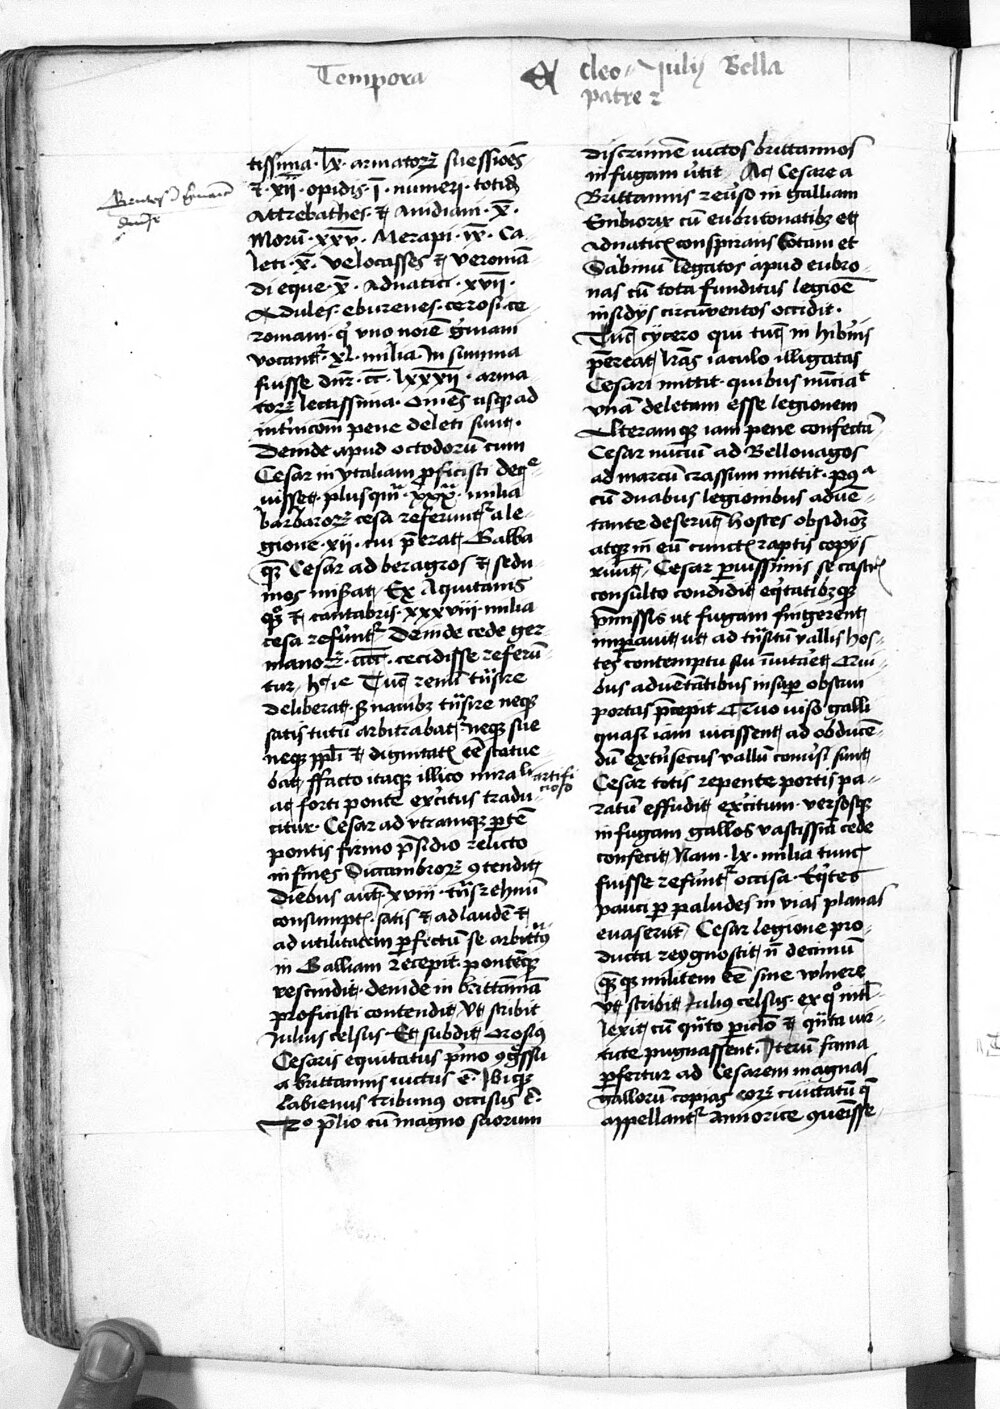 Tempora
Cleo Julij Bella
patre
tissima · lx · armatorꝝ suessiões
⁊ · xij · opidis ī · numeri · totidē
attrebathes ⁊ Amdiam · x ·
Morū · xxv · Merapi · ix · Ca
leti · x · velocasses ⁊ veromā
di eque · x · aduatici · xvii ·
Adules · eburenes · cerosi · ce
romani · qͥ vno noīe gͤmani
vocantͬ · xl · milia In summa
fuisse dn̄r · cc · lxxxii · arma
torꝝ lectissima · Om̄es usqꝫ ad
int̾nicōm pene deleti sunt ·
Deinde apud octodorū cum
Cesar in ytaliam ꝓficisci decͤ
uisset · plusqm̄ · xxx · milia
barbarorꝝ cesa referuntͬ a le
gione · xii · cui p̄erat Galba
quē Cesar ad beragros ⁊ sedu
nos misat Ex Aquitanis
qͦꝫ ⁊ cantabris · xxxviii · milia
cesa refūntͬ Deinde cede ger
manorꝝ · cccc · cecidisse referū
tur hͦ ic Tūc renū tͣnsire
deliberat · S nauibꝫ tͣnsire neqꝫ
satis tutū arbitrabatͬ neqꝫ sue
neqꝫ ppl̄i ⁊ dignitatꝭ eē statue
bat ffacto itaqꝫ illico mirali
artifi
cioso
ac forti ponte exc̾itus tradu
citur · Cesar ad vtramqꝫ ꝑtē
pontis firmo p̄sidio relicto
in fines Siccambrorꝝ ꝯtendit
Diebus aut̄ xviii · tͣns rehnū
consumptꝭ · satis ⁊ ad laudē ⁊
ad utilitatem ꝓfectū se arbitͣtꝰ
in Galliam recepit · pontēqꝫ
rescindit · deinde in brittāniā
proficisci contendit Vt scribit
Julius celsus · Et subdit Orosiꝰ
Cesaris equitatus p̾mo ꝯgͤssu
a brittannis uictus ē · Ibiqꝫ
Labienus tribunꝰ occisus ē ·
2º p̄lio cū magno suorum
discrimē uictos brittannos
in fugam ūtit Ac Cesare a
Brittannis reūso in galliam
Embiorix cū euritonatibꝫ et
aduaticꝭ conspirans Cotam et
Sabinū legatos apud eubro
nas cū tota funditus legioē
insidijs circūuentos occidit ·
Tūc cycero qui tūc in hibͤnis
p̄erat lr̄as iaculo illigatas
Cesari mittit · quibus nūciat
vnā deletam esse legionem
Alteram qꝫ iam pene confectā
Cesar nuciū ad Bellouagos
ad marcū crassum mittit · pꝯᵃ
cū duabus legionibus aduē
tante deserūt hostes obsidiōꝫ
atqꝫ in eū cunctꝭ raptis copijs
ruūt Cesar ꝑuissimis se castrꝭ
consulto condidit eqͥtatibꝫqꝫ
p̄missis ut fugam fingerent
imꝑauit ut ad tͣnsitū vallis hos
tes contemptu sui inuitaret Qui
bus aduētātibus insuꝑ obstrui
portas p̄cepit Quo uiso galli
quasi iam uicissent ad obducē
dū extͥnsecus vallū conūsi sunt
Cesar totis repente portis pa
ratū effudit exc̾itum · versosqꝫ
in fugam gallos vastissīa cede
confecit Nam · lx · milia tunc
fuisse refūntͬ occisa · Eqͥtes
pauci ꝑ paludes in vias planas
euaserūt Cesar legione pro
ducta recognoscit n̄ decimū
quēqꝫ militem eē sine vulnere
Vt scribit Julius celsus · ex qͦ intl
lexit cū qͣnto ꝑiclo ⁊ qͣnta vir
tute pugnassent · Iterū fama
ꝑfertur ad Cesarem magnas
gallorū copias eorꝝ ciuitatū q̄
appellantͬ Armorice ꝯuēisse